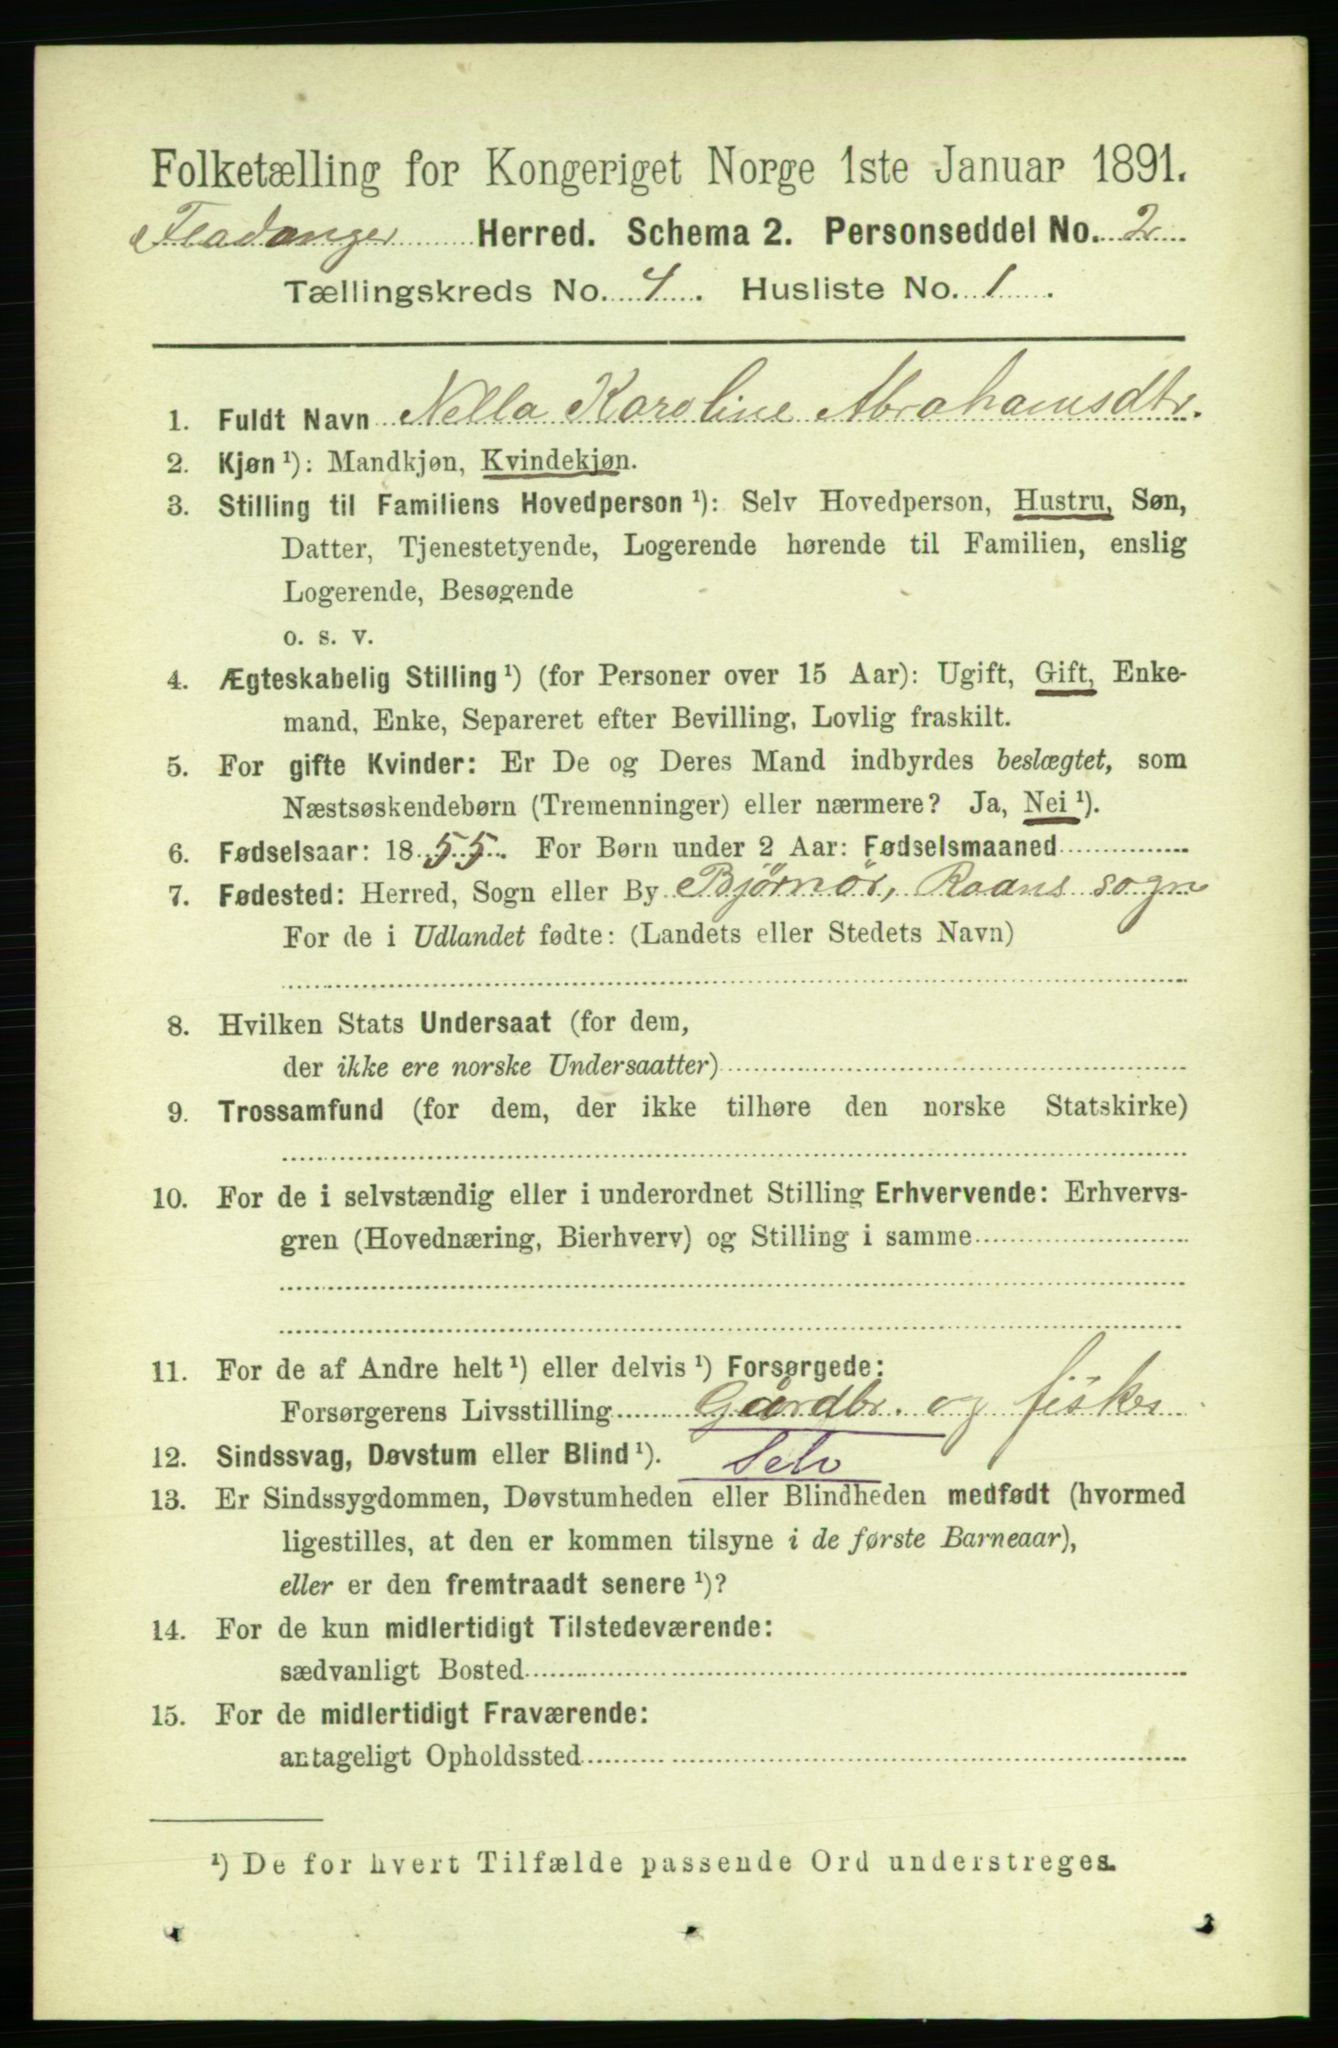 Folketælling for Kongeriget Norge 1ste Januar 1891.
Fladanger Herred. Schema 2. Personseddel No. 2
Tællingskreds No. 4. Husliste No. 1.
1. Fuldt Navn Nella Karoline Abrahamsdtr.
2. Kjøn¹): Mandkjøn, Kvindekjøn.
3. Stilling til Familiens Hovedperson¹): Selv Hovedperson, Hustru, Søn,
Datter, Tjenestetyende, Logerende hørende til Familien, enslig
Logerende, Besøgende
o. s. v.
4. Ægteskabelig Stilling¹) (for Personer over 15 Aar): Ugift, Gift, Enke-
mand, Enke, Separeret efter Bevilling, Lovlig fraskilt.
5. For gifte Kvinder: Er De og Deres Mand indbyrdes beslægtet, som
Næstsøskendebørn (Tremenninger) eller nærmere? Ja, Nei¹).
6. Fødselsaar: 1855. For Børn under 2 Aar: Fødselsmaaned
7. Fødested: Herred, Sogn eller By Bjørnør, Roans sogn
For de i Udlandet fødte: (Landets eller Stedets Navn)
8. Hvilken Stats Undersaat (for dem,
der ikke ere norske Undersaatter)
9. Trossamfund (for dem, der ikke tilhøre den norske Statskirke)
10. For de i selvstændig eller i underordnet Stilling Erhvervende: Erhvervs-
gren (Hovednæring, Bierhverv) og Stilling i samme
11. For de af Andre helt¹) eller delvis¹) Forsørgede:
Forsørgerens Livsstilling Gårdbr. og fisker
12. Sindssvag, Døvstum eller Blind¹). Selv
13. Er Sindssygdommen, Døvstumheden eller Blindheden medfødt (hvormed
ligestilles, at den er kommen tilsyne i de første Barneaar),
eller er den fremtraadt senere¹)?
14. For de kun midlertidigt Tilstedeværende:
sædvanligt Bosted
15. For de midlertidigt Fraværende:
antageligt Opholdssted
¹) De for hvert Tilfælde passende Ord understreges.